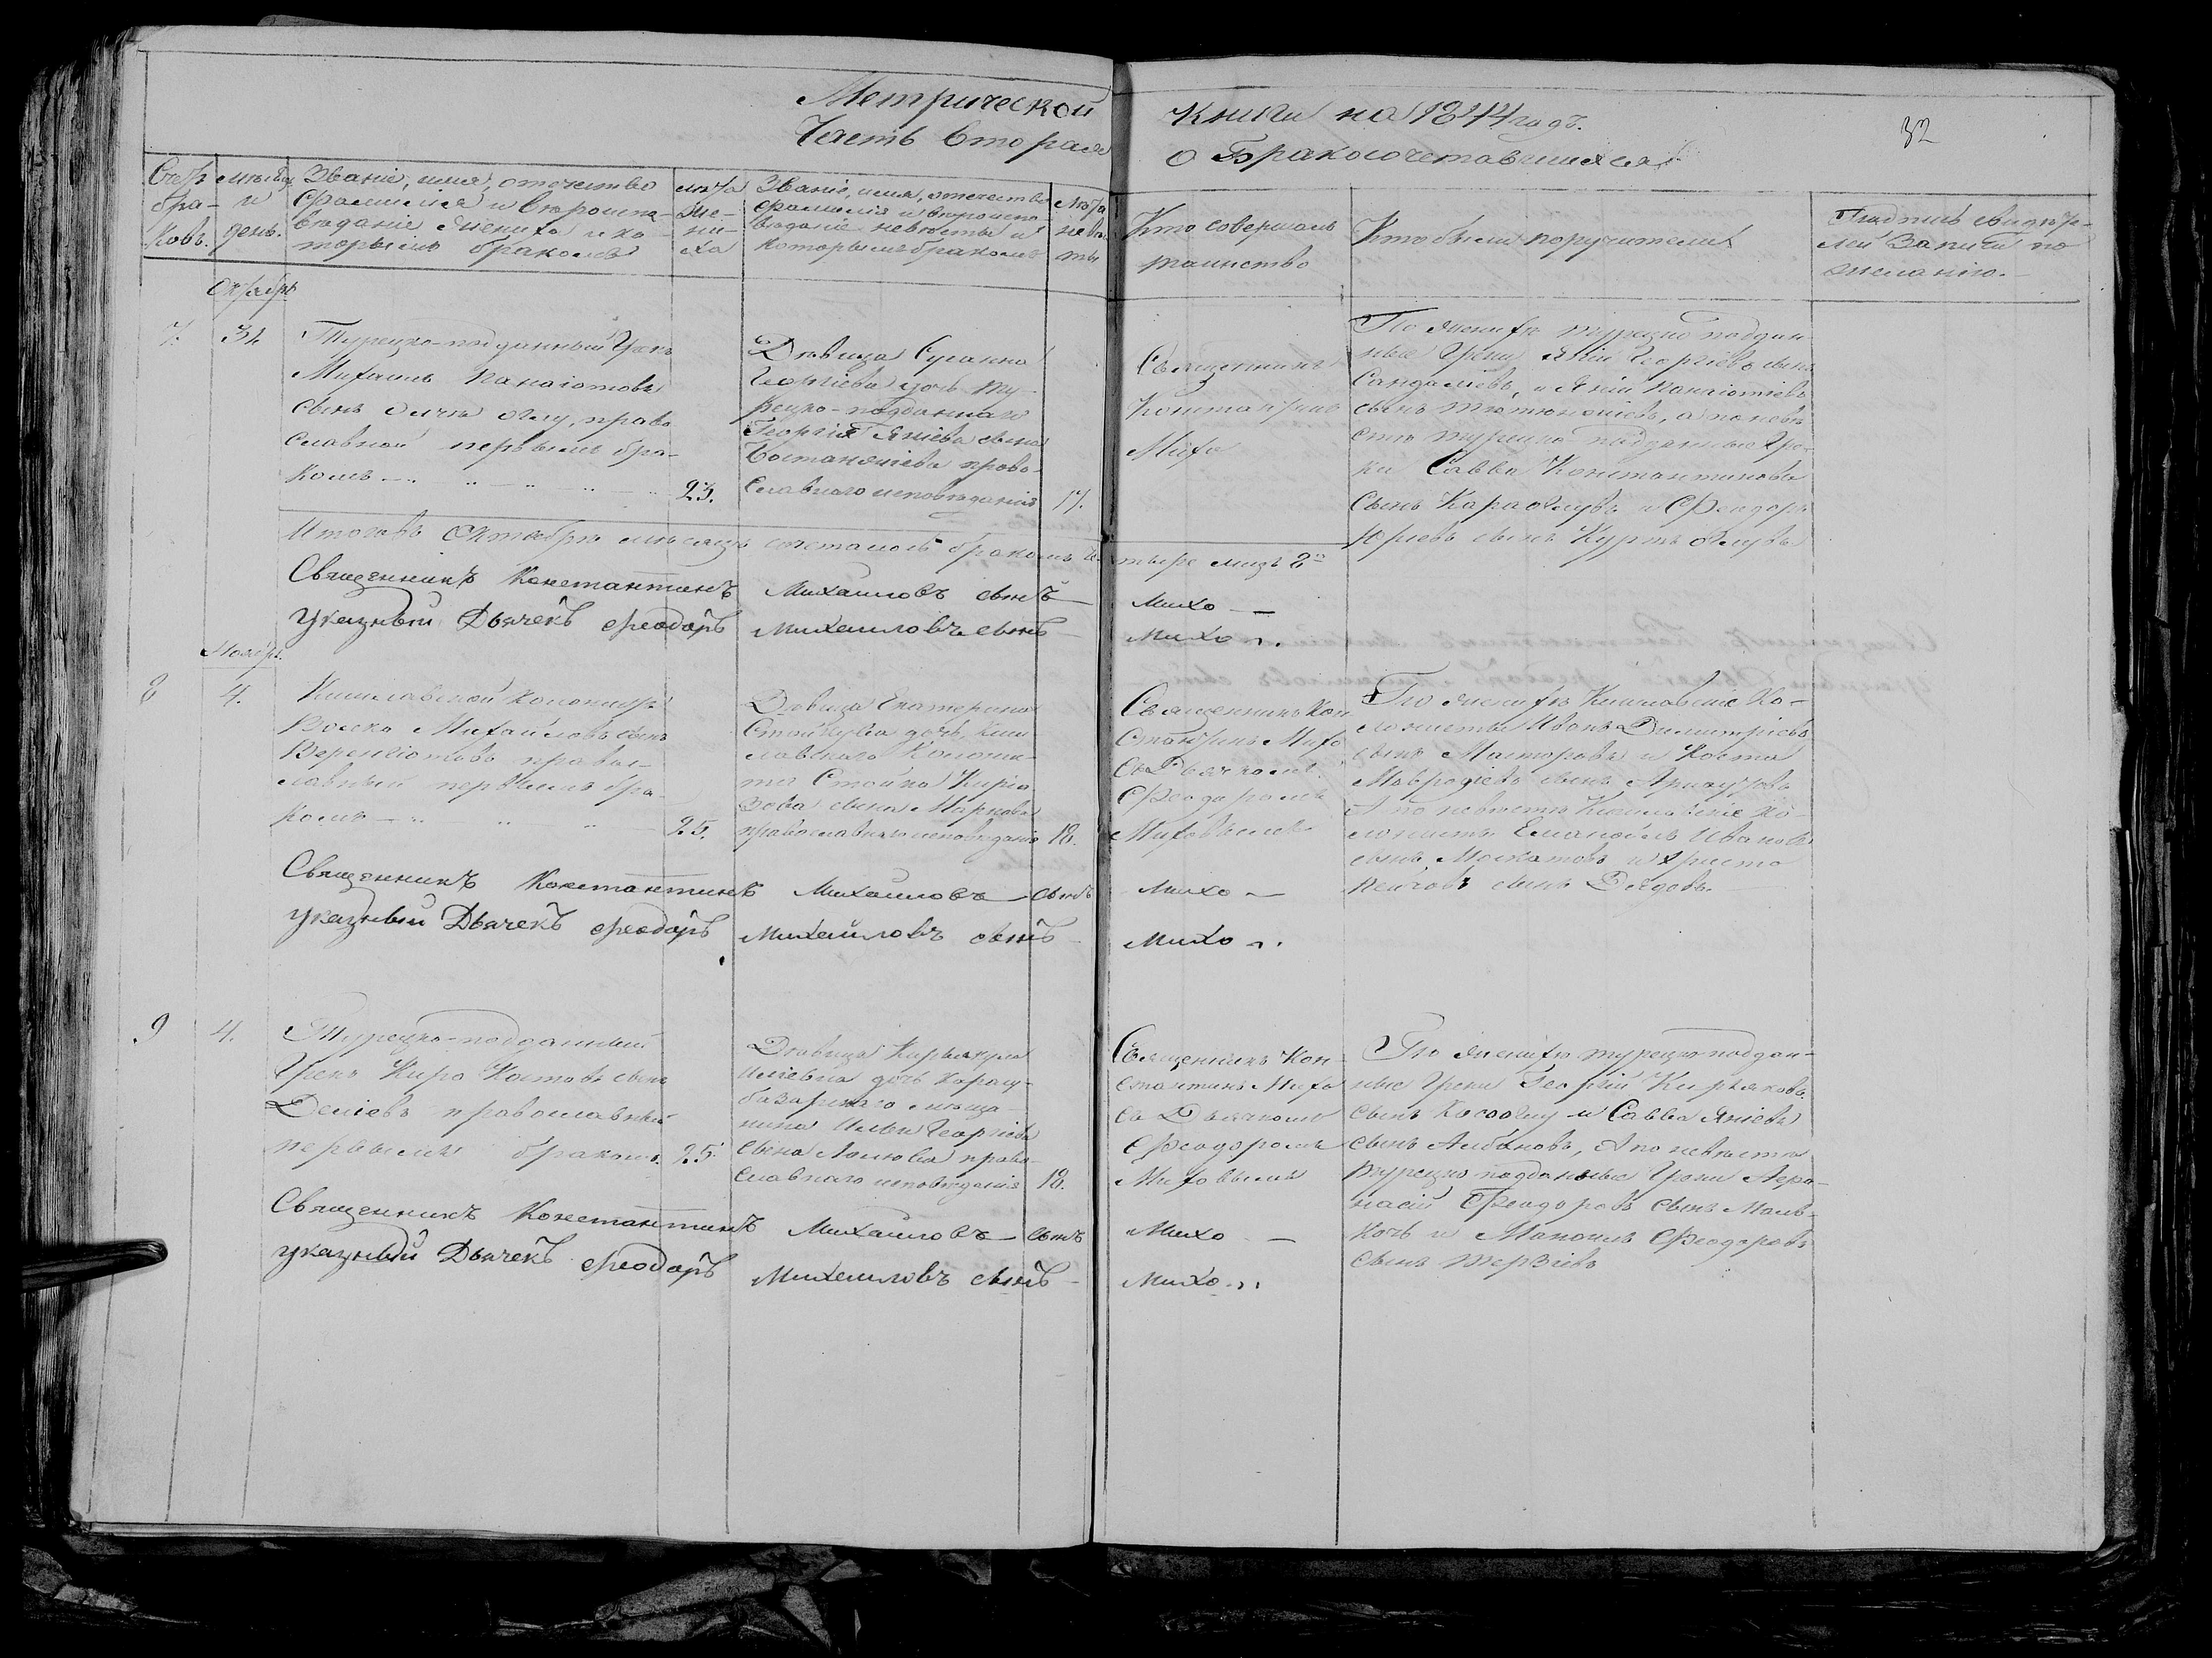 Метрической
Часть Вторая
книги на 1844 годъ.
о Бракосочетавшихся
32
Счетъ браковъ.
Мѣсяцъ и день.
Званіе, имя, отечество
фамилія и вѣроиспо-
вѣданіе жениха и ко-
торымъ бракомъ
лѣта
же-
ни-
ха
Званіе, имя, отечество
фамилія и вѣроиспо
вѣданіе невѣсты и
которымъ бракомъ
лѣта
невѣс
ты
Кто совершалъ
таинство
Кто были поручители
Подпись свидѣте-
лей записи по
желанію.
Октябрь
7.
31
Турецко-подданный Грекъ
Михаилъ Панаіотовъ
сынъ оглу, право
славной первымъ бра-
комъ
23.
Дѣвица Сусанна
Георгіева дочь ту-
рецко-подданнаго
Георгія Яніева сына
Бостанжіева право-
славнаго исповѣданія
17.
Священникъ
Константинъ
Михо
По женихѣ турецко поддан
ные Греки Яній Георгіевъ сынъ
Сандаліевъ, и Яній Панаіотіевъ
сынъ, а по невѣ
стѣ турецко-подданные Гре-
ки Савва Константиновъ
сынъ Караогловъ и Феодоръ
Юріевъ сынъ Куртъ Оглувъ
Итоговъ Октябрѣ мѣсяцѣ сочеталось бракомъ четыре лицъ
Священникъ Константинъ Михаиловъ сынъ Михо
Указный Дьячекъ Феодоръ Михаиловъ сынъ Михо
Ноябрь.
8
4.
Кишлавской колонистъ
Волско Михайловъ сынъ
правос-
лавный первымъ бра-
комъ
25.
Дѣвица Екатерина
Стойкува дочь Киш
лавскаго Колони-
ста Стойка Кирія
зова сына Маркова
православнаго исповѣданія
18.
Священникъ Кон
стантинъ Михо
съ Дьячкомъ
Феодоромъ
Миховымъ
По женихѣ Кишлавскіе Ко-
лонисты Иванъ Димитріевъ
сынъ Масторовъ и Коста
Мавродіевъ сынъ Арнаутовъ
А по невѣстѣ Кишлавскіе Ко-
лонисты Емануилъ Ивановъ
сынъ Москатовъ и Христо
Пейговъ сынъ Дядовъ
Священникъ Константинъ Михаиловъ сынъ Михо
указный Дьячекъ Феодоръ Михайловъ сынъ Михо
9
4.
Турецко-подданный
Грекъ Киро Костовъ сынъ
Деліевъ православный
первымъ бракомъ.
25
Дѣвица Кирьякула
Иліевна дочь Карасу-
базарскаго мѣща-
нина Ильи Георгіева
сына право-
славнаго исповѣданія
18.
Священникъ Кон-
стантинъ Михо
съ Дьячкомъ
Феодоромъ
Миховымъ
По женихѣ турецко поддан-
ные Греки Георгій Кирьяковъ
сынъ и Савва Яніевъ
сынъ Албановъ, А по невѣстѣ
турецко подданные Греки Аѳа-
насій Феодоровъ сынъ
и Манолъ Феодоровъ
сынъ Терзіевъ
Священникъ Константинъ Михаиловъ сынъ Михо
указный Дьячекъ Феодоръ Михаиловъ сынъ Михо